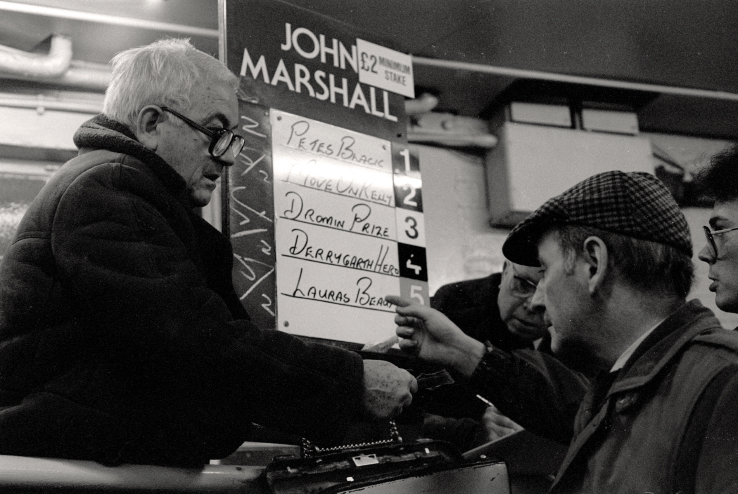 JOHN
MARSHALL
£2 MINIMUM
STAKE
PETES BRACK 1
MOVE ON KELLY 2
DROMIN PRIZE 3
DERRYGARTH HERO 4
LAURAS BEAU 5